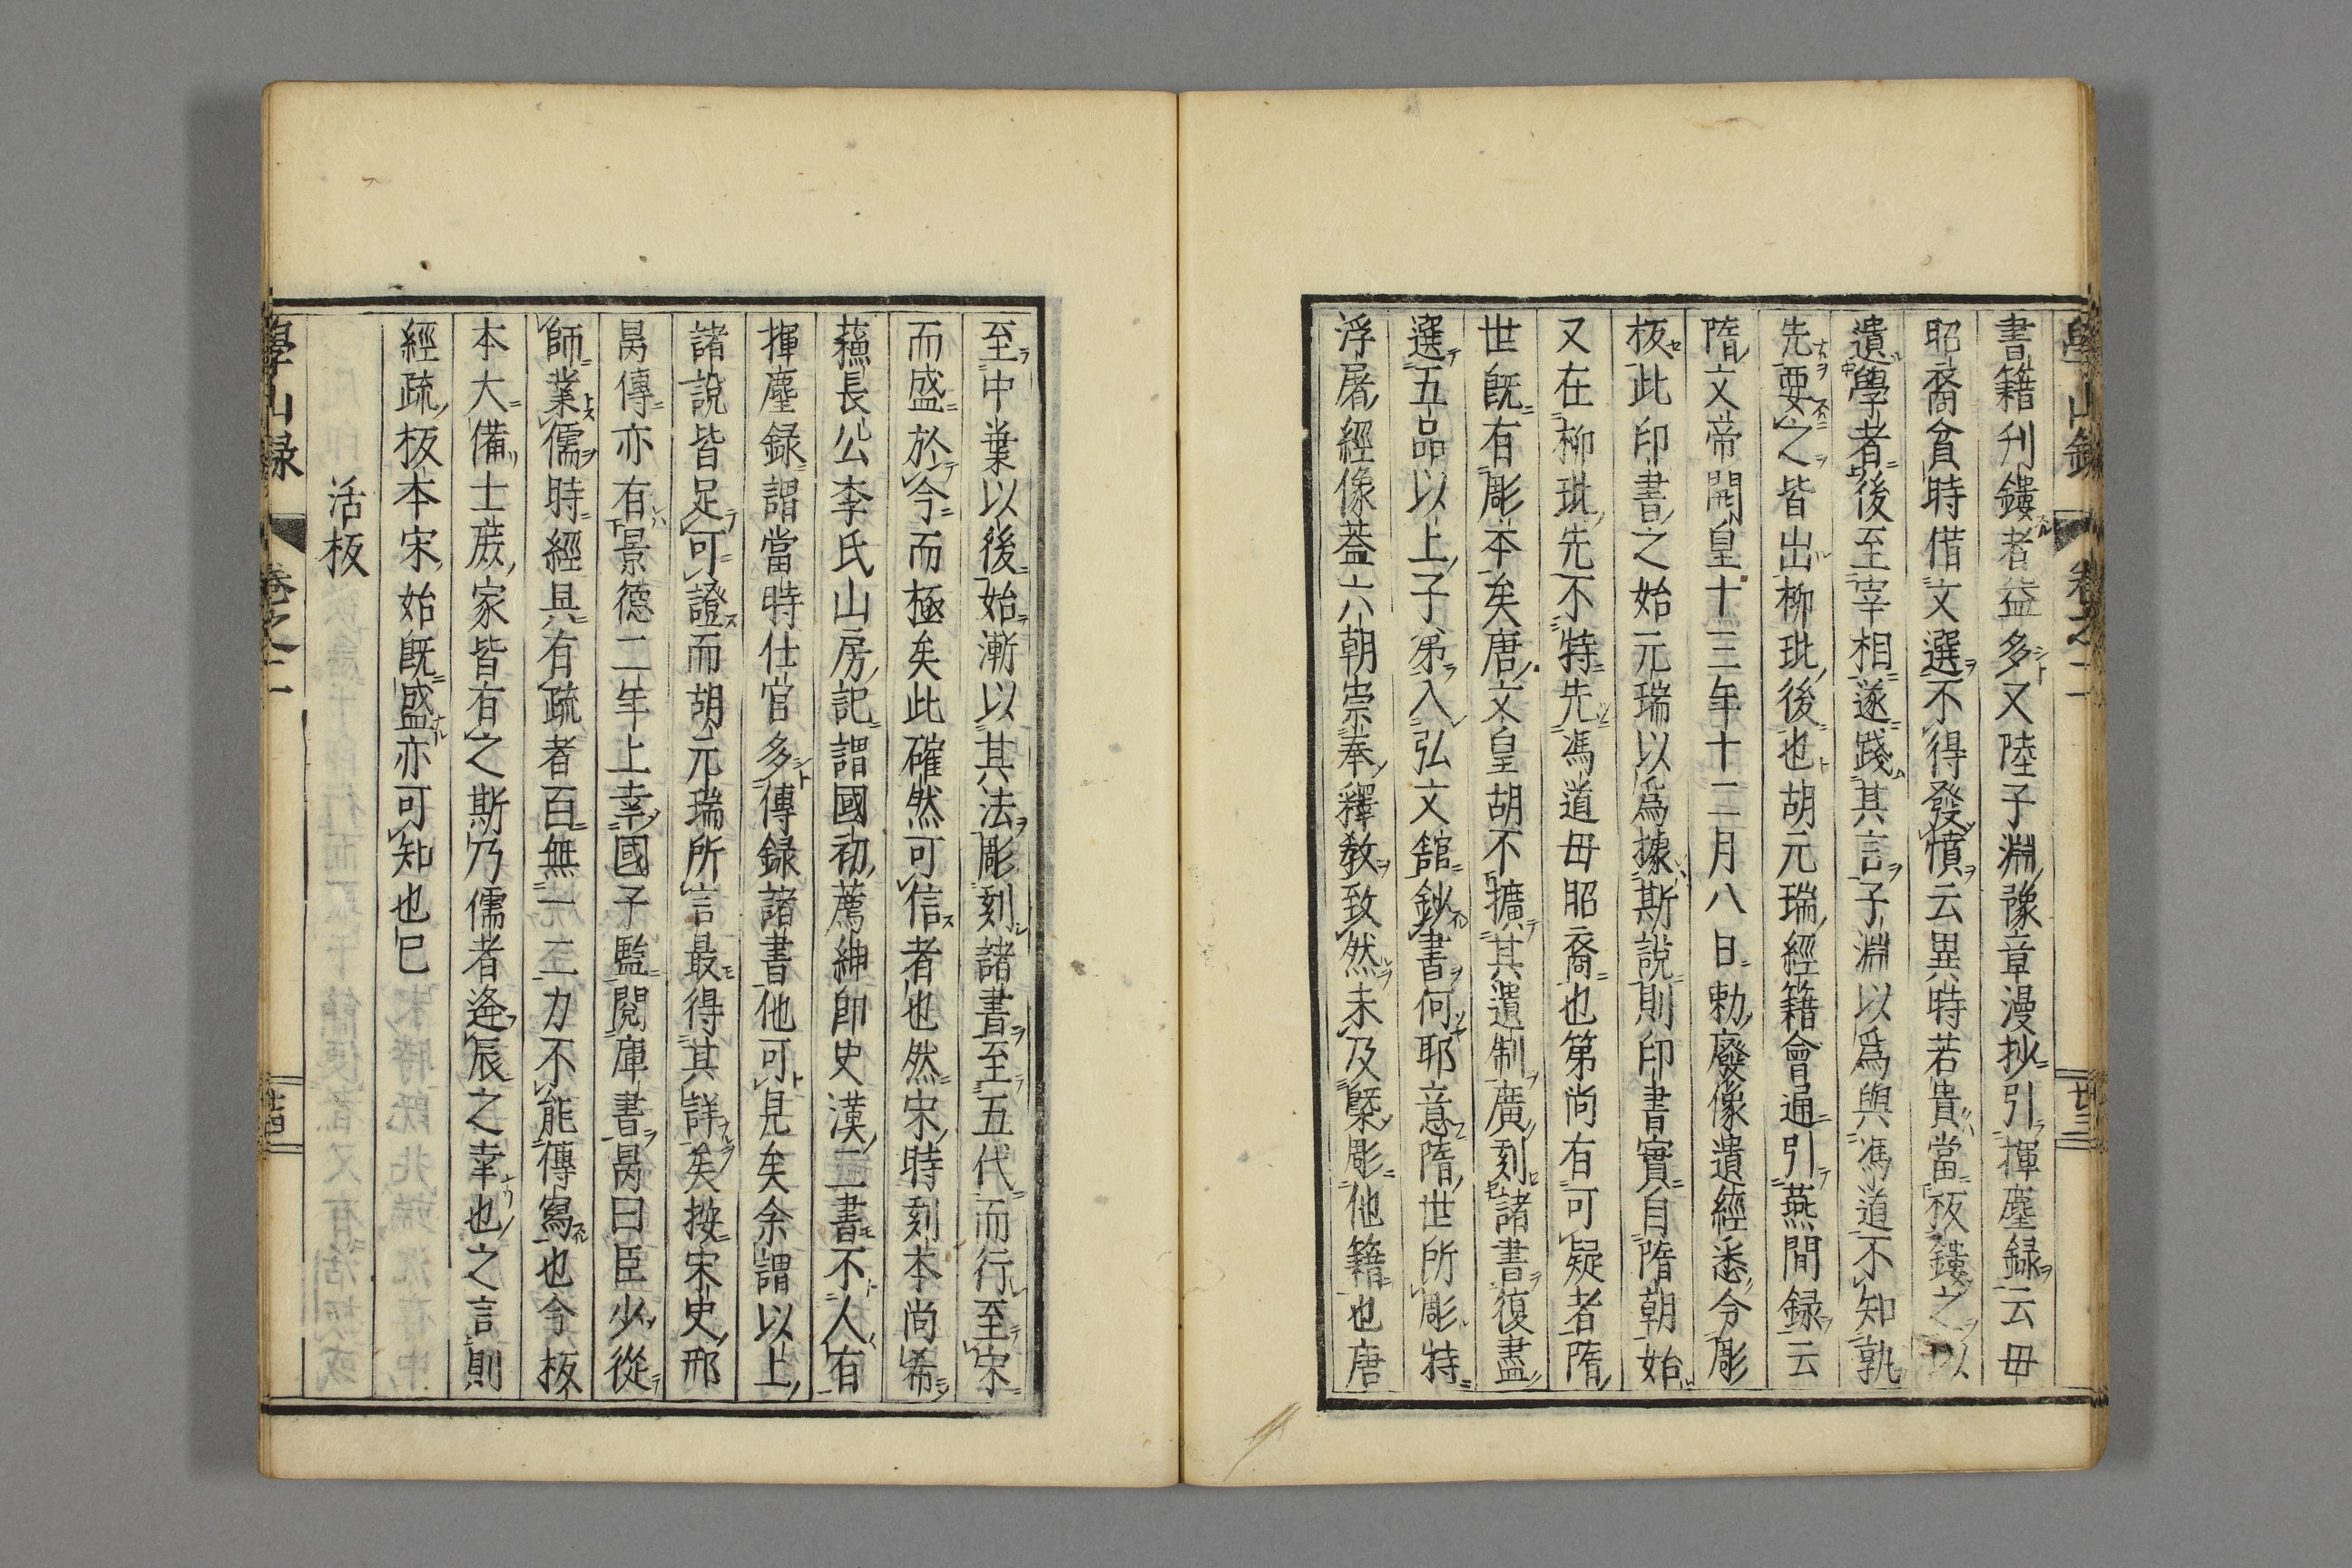 學山錄 卷之二 廿三
書籍刋鏤者益多又陸子淵豫章漫抄引揮塵録云毋
昭裔貧時借文選不得發憤云異時若貴當板鏤之以
遺學者後至宰相遂踐其言子淵以爲與馮道不知孰
先要之皆出柳玭後也胡元瑞經籍會通引燕間録云
隋文帝開皇十三年十二月八日勅廢像遺經悉令彫
板此印書之始元瑞以爲據斯說則印書實自隋朝始
又在柳玭先不特先馮道毋昭裔也第尚有可疑者隋
世旣有彫本矣唐文皇胡不擴其遺制廣刻諸書復盡
選五品以上子弟入弘文舘鈔書何耶意隋世所彫特
浮屠經像葢六朝崇奉釋教致然未及槩彫他籍也唐
至中葉以後始漸以其法彫刻諸書至五代而行至宋
而盛於今而極矣此確然可信者也然宋時刻本尚希
蘓長公李氏山房記謂國初薦紳卽史漢二書不人有
揮塵録謂當時仕官多傳録諸書他可見矣余謂以上
諸說皆足可證而胡元瑞所言最得其詳矣按宋史邢
昺傳亦有景德二年上幸國子監閱庫書昺曰臣少從
師業儒時經具有疏者百無一二力不能傳寫也今板
本大備士庶家皆有之斯乃儒者逄辰之幸也之言則
經疏板本宋始旣盛亦可知也已
活板
學山錄 卷之二 廿四